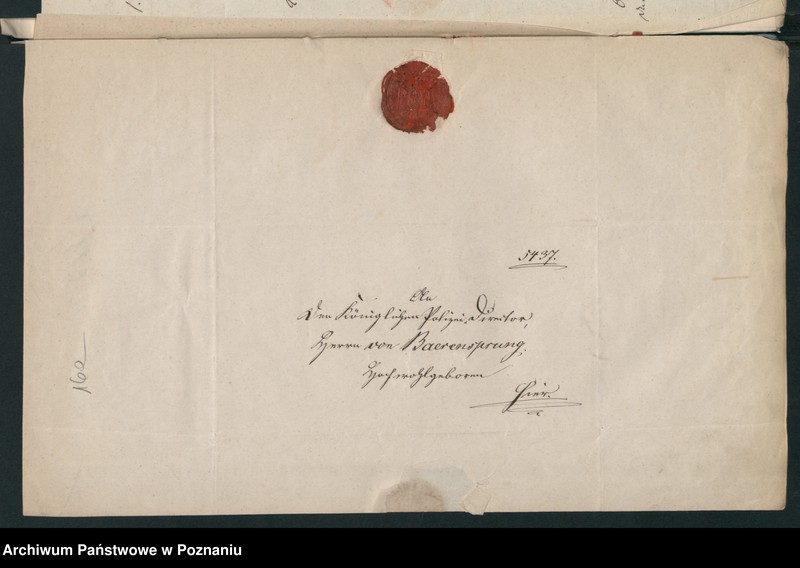 5437.
An
Den Königlichen Polizei-Director,
Herrn von Baerensprung,
Hochwohlgeboren
hier.
162
Archiwum Państwowe w Poznaniu